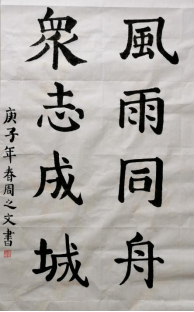 風雨同舟
眾志成城
庚子年春周之文書